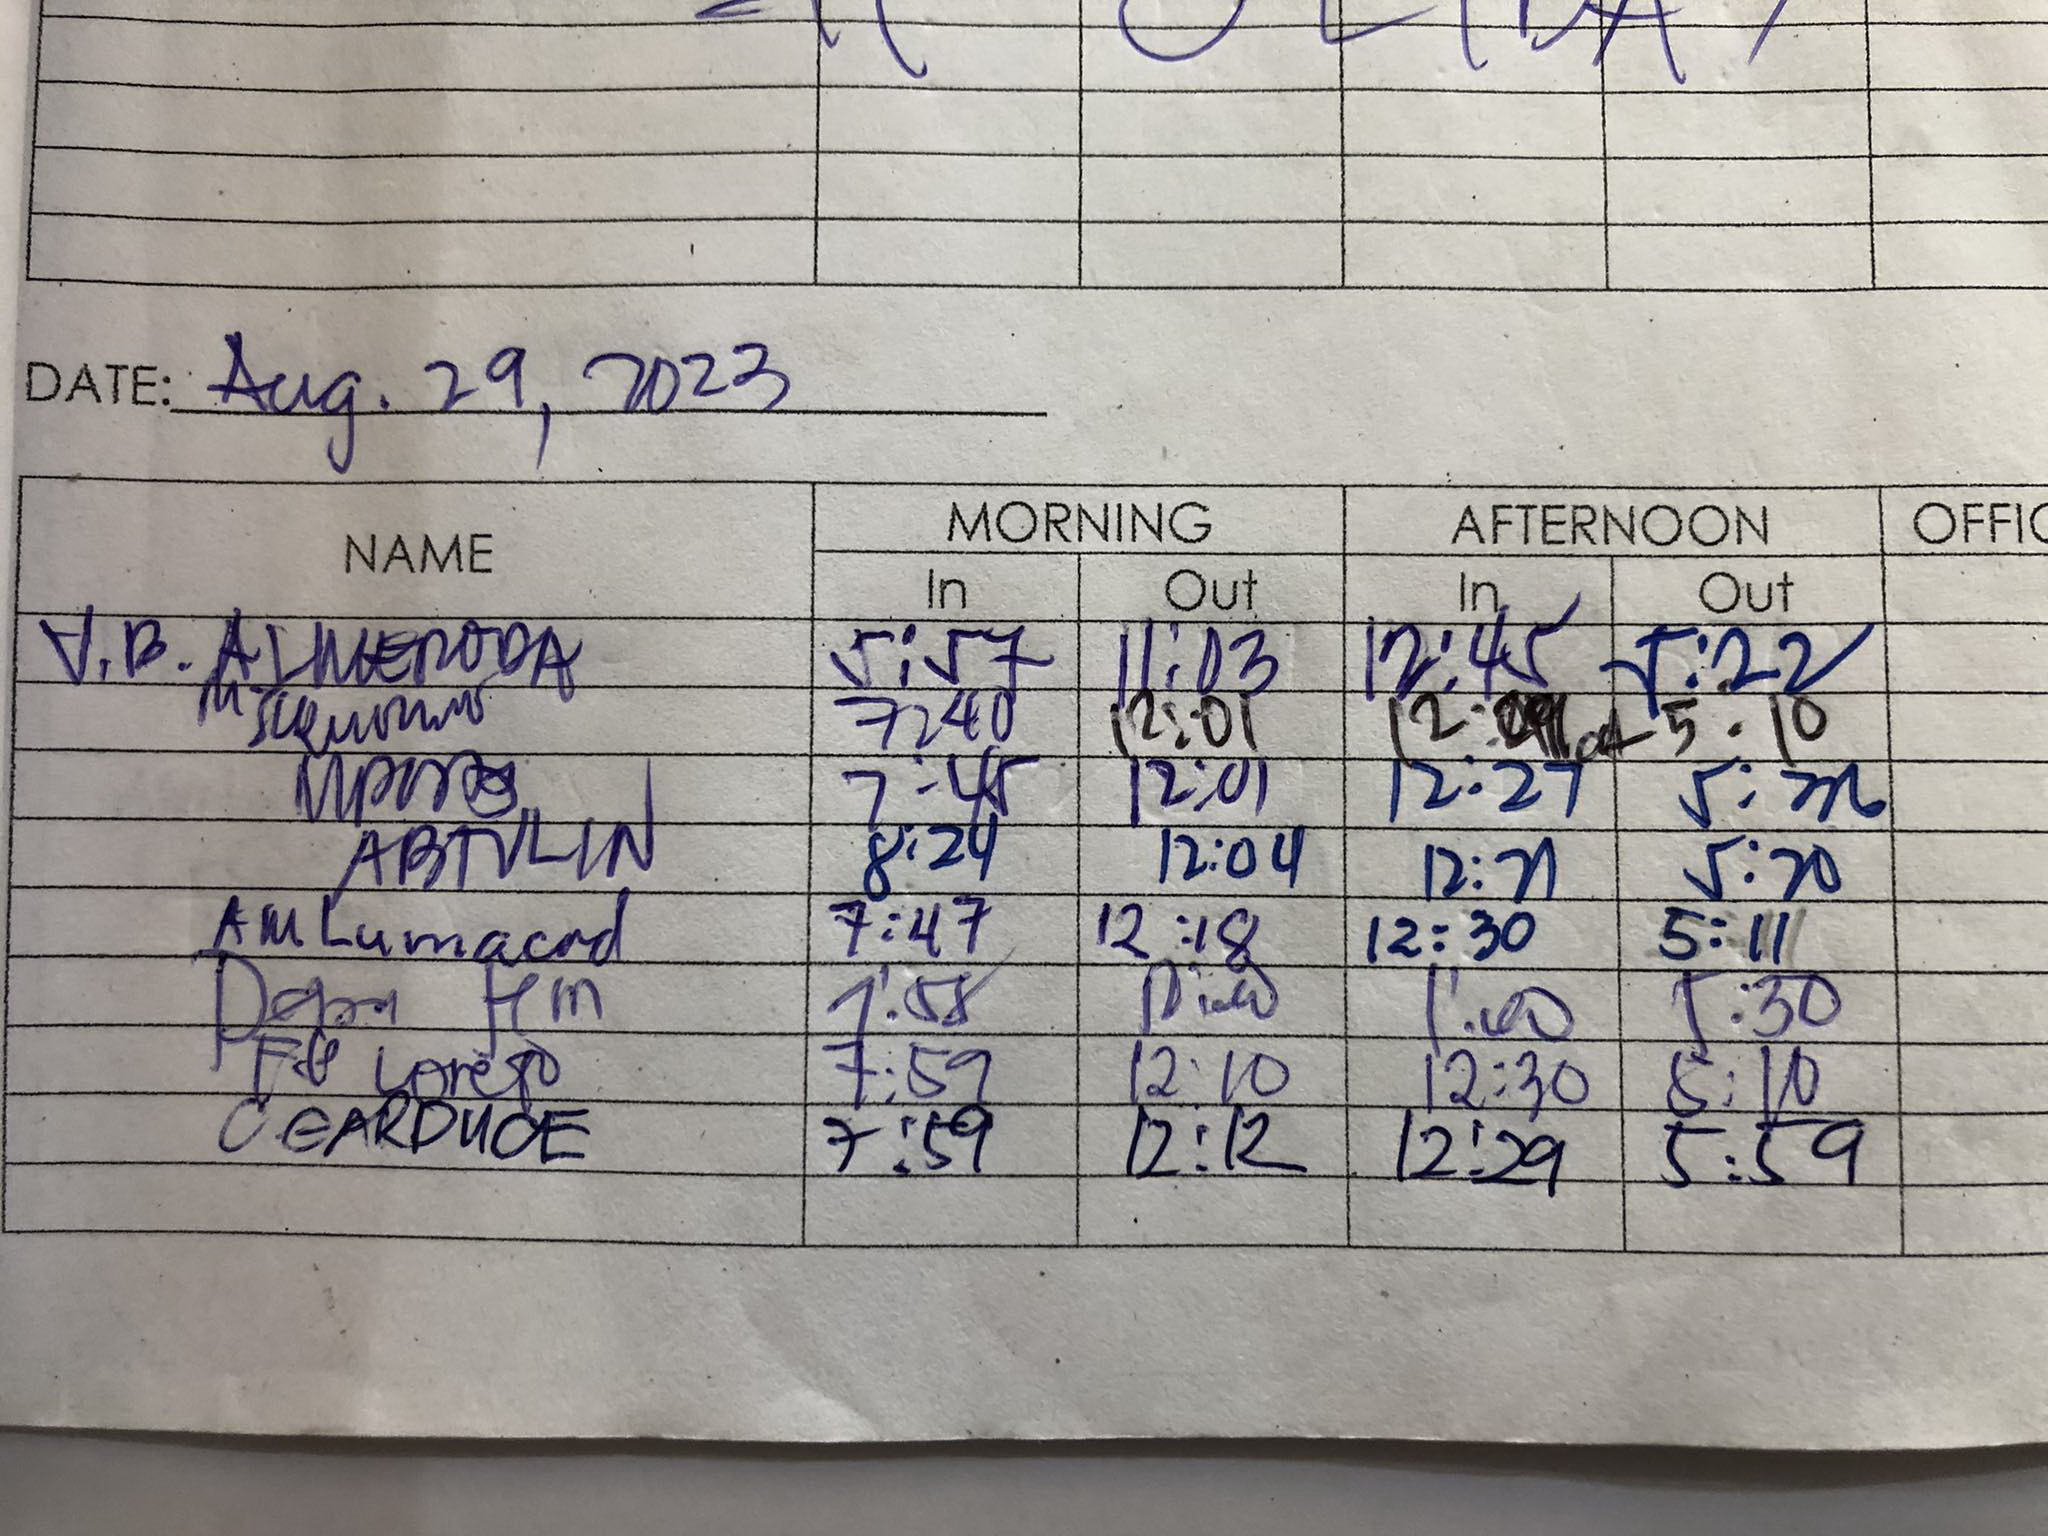 HOLIDAY
DATE: Aug. 29, 2023
NAME MORNING AFTERNOON OFFIC
In Out In Out
V.B. ALMENODA 5:57 11:03 12:45 5:22
7:40 12:01 5:10
7:45 12:01 12:27
ABTULIN 8:24 12:04 12:21 5:20
AM Lumacad 7:47 12:18 12:30 5:11
7:58 1:00 5:30
Fe Loreto 7:59 12:10 12:30 5:10
C GARDUCE 7:59 12:12 12:29 5:59